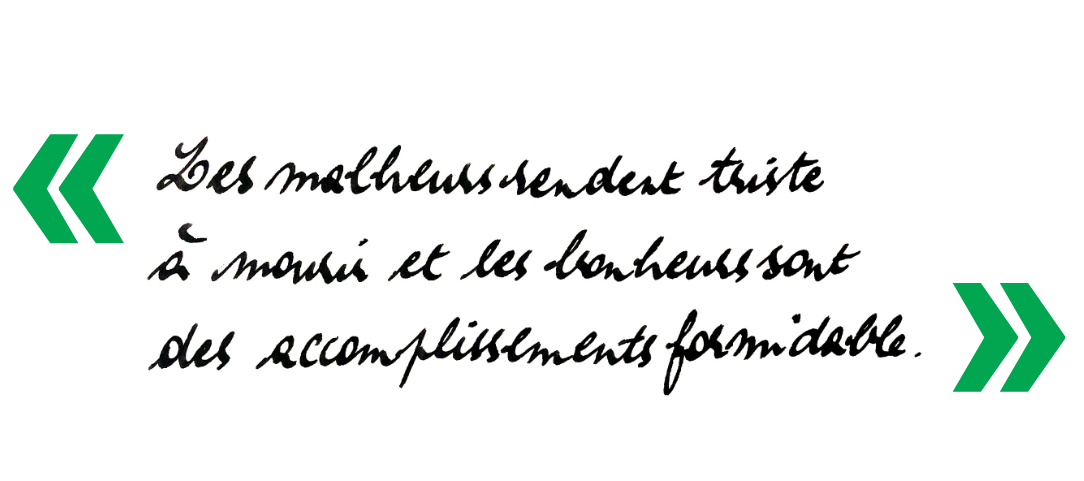 « Les malheurs rendent triste
à mourir et les bonheurs sont
des accomplissements formidable. »